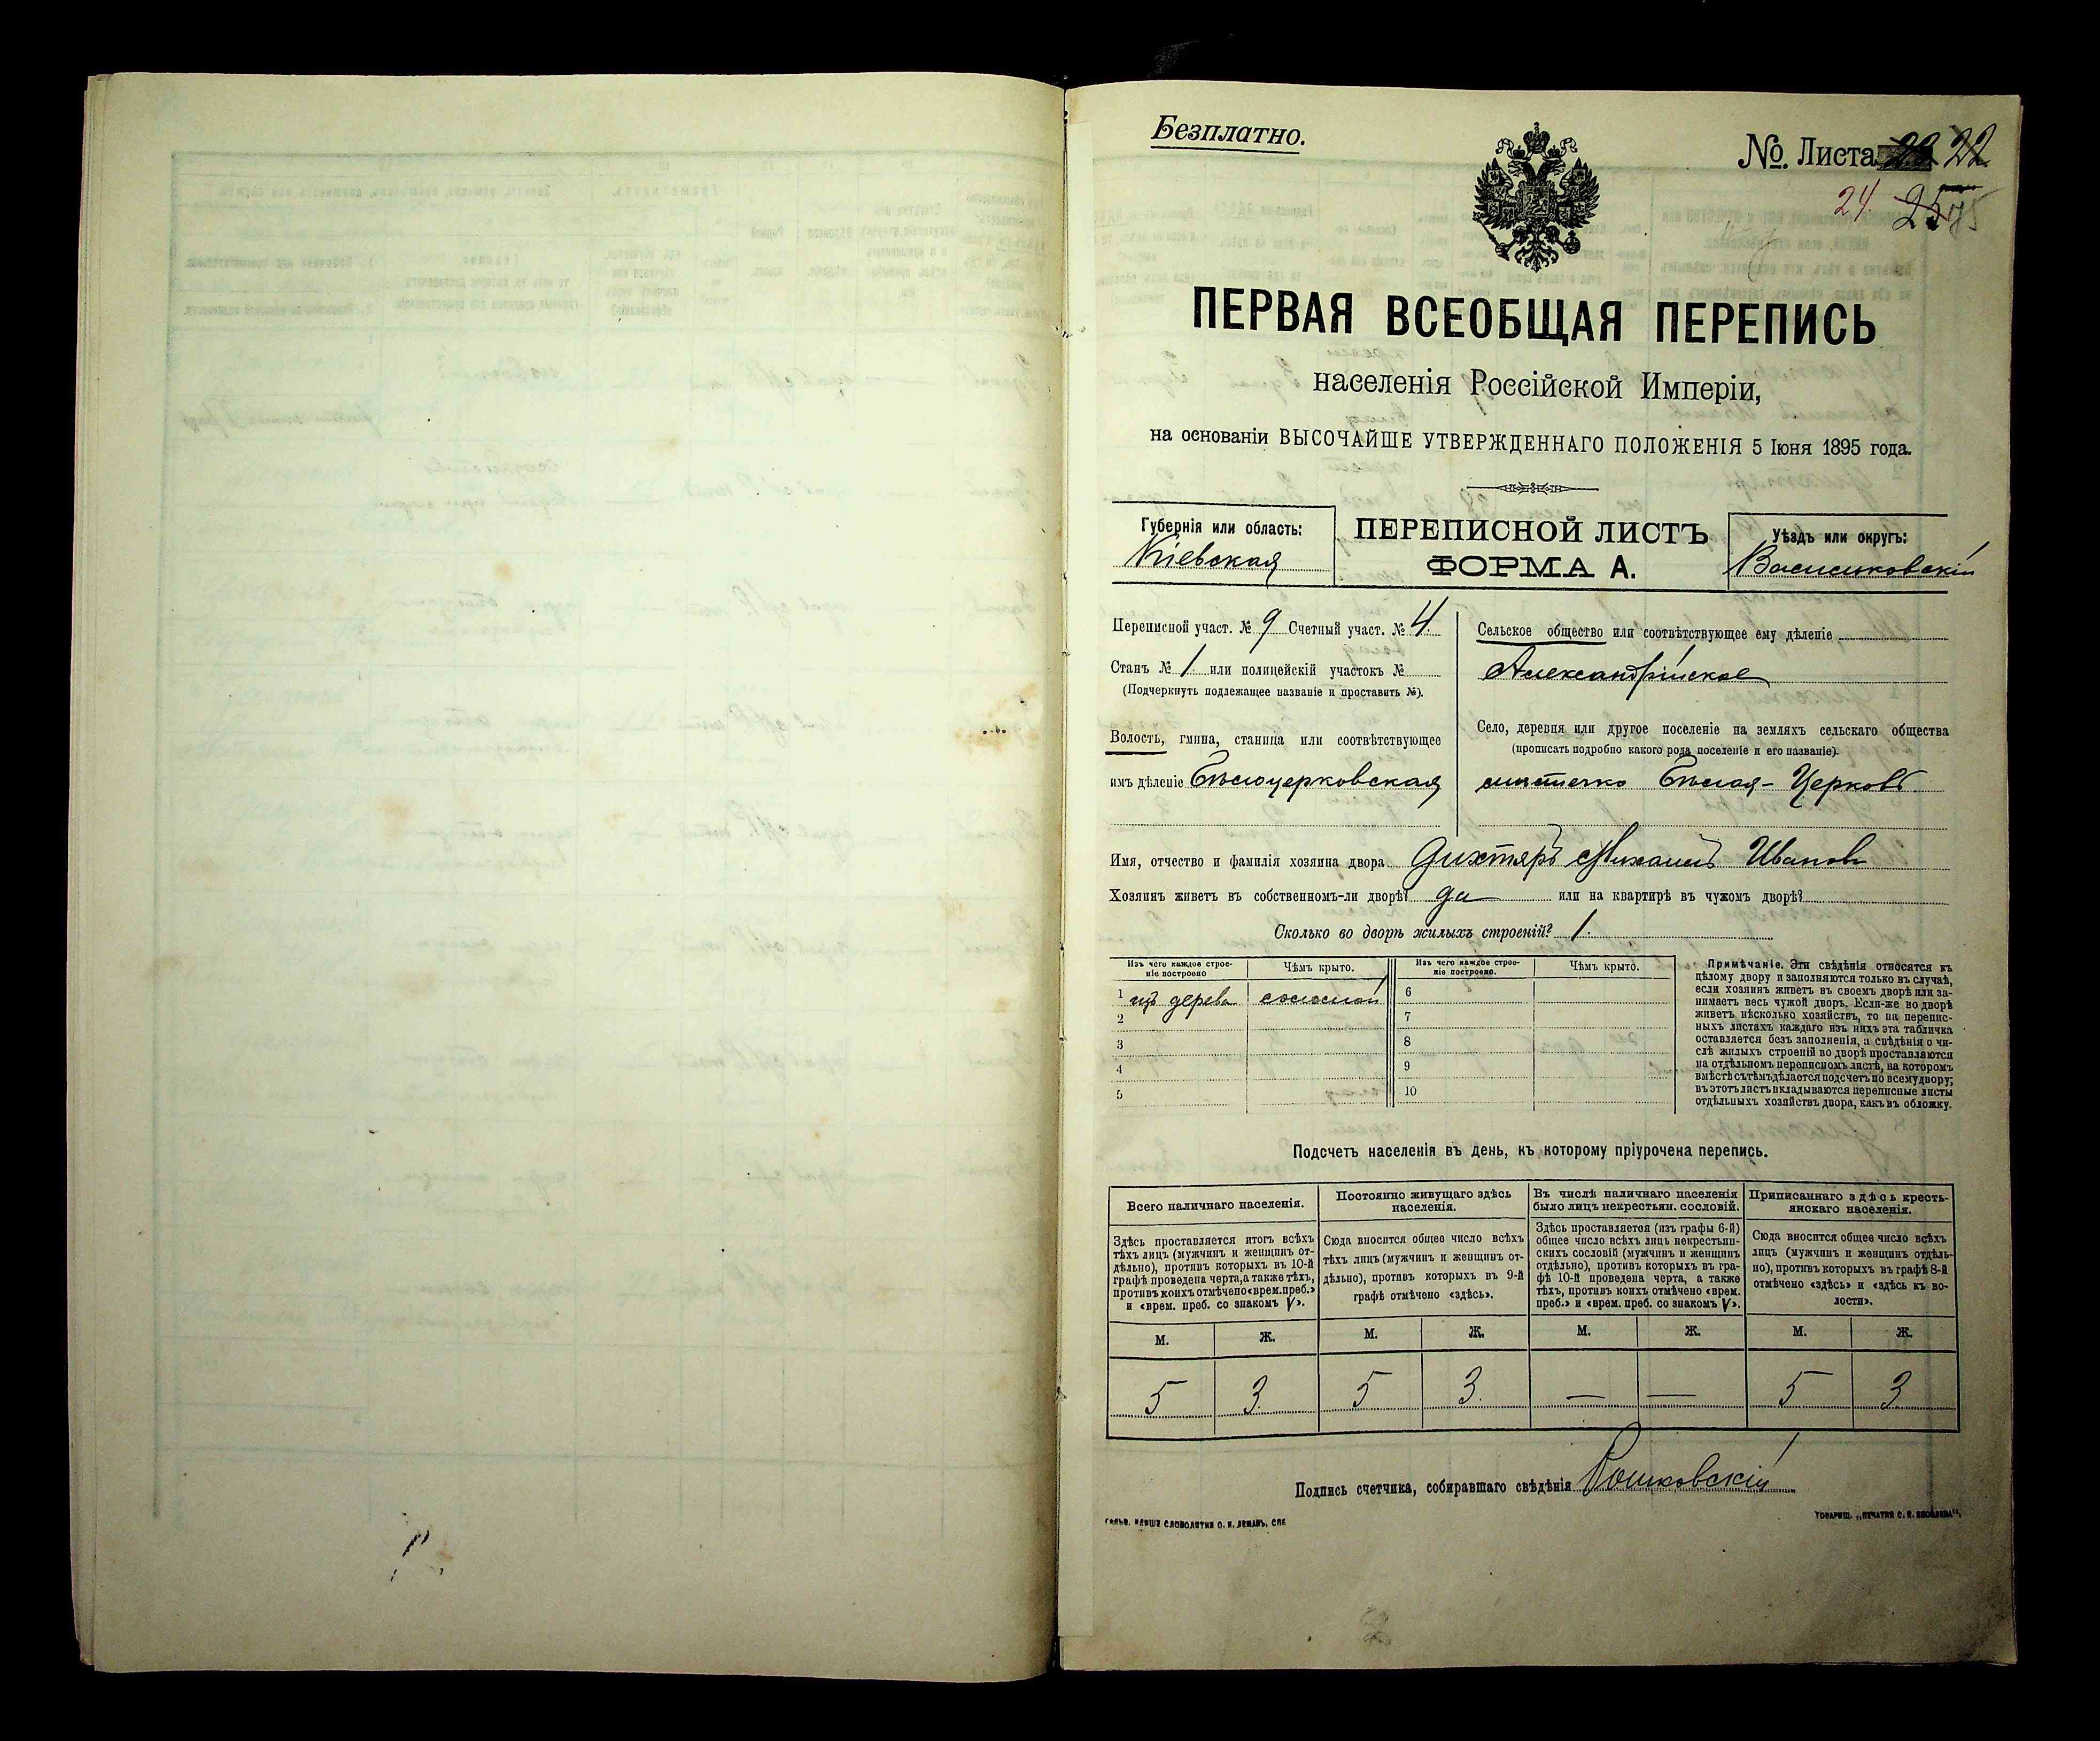 Безплатно.
№. Листа 22
24 25
ПЕРВАЯ ВСЕОБЩАЯ ПЕРЕПИСЬ
населенія Россійской Имперіи,
на основаніи ВЫСОЧАЙШЕ УТВЕРЖДЕННАГО ПОЛОЖЕНІЯ 5 Іюня 1895 года.
Губернія или область:
Кіевская
ПЕРЕПИСНОЙ ЛИСТЪ
ФОРМА А.
Уѣздъ или округъ:
Васильковскій
Переписной участ. № 9 Счетный участ. № 4.
Станъ № 1. или полицейскій участокъ №
(Подчеркнуть подлежащее названіе и проставить №).
Волость, гмина, станица или соотвѣтствующее
имъ дѣленіе Бѣлоцерковская
Сельское общество или соотвѣтствующее ему дѣленіе
Александрійское
Село, деревня или другое поселеніе на земляхъ сельскаго общества
(прописать подробно какого рода поселеніе и его названіе).
мѣстечко Бѣлая-Церковь.
Имя, отчество и фамилія хозяина двора Дихтярь Михаилъ Ивановъ
Хозяинъ живетъ въ собственномъ-ли дворѣ? да или на квартирѣ въ чужомъ дворѣ?
Сколько во дворѣ жилыхъ строеній? 1.
Изъ чего каждое строе-
ніе построено
Чѣмъ крыто.
Изъ чего каждое строе-
ніе построено.
Чѣмъ крыто.
1 изъ дерева соломой 6
2 7
3 8
4 9
5 10
Примѣчаніе. Эти свѣдѣнія относятся къ
цѣлому двору и заполняются только въ случаѣ,
если хозяинъ живетъ въ своемъ дворѣ или за-
нимаетъ весь чужой дворъ. Если-же во дворѣ
живетъ нѣсколько хозяйствъ, то на перепис-
ныхъ листахъ каждаго изъ нихъ эта табличка
оставляется безъ заполненія, а свѣдѣнія о чи-
слѣ жилыхъ строеній во дворѣ проставляются
на отдѣльномъ переписномъ листѣ, на которомъ
вмѣстѣ съ тѣмъ дѣлается подсчетъ по всему двору;
въ этотъ листъ вкладываются переписные листы
отдѣльныхъ хозяйствъ двора, какъ въ обложку.
Подсчетъ населенія въ день, къ которому пріурочена перепись.
Всего наличнаго населенія.
Постоянно живущаго здѣсь
населенія.
Въ числѣ наличнаго населенія
было лицъ некрестьян. сословій.
Приписаннаго здѣсь кресть-
янскаго населенія.
Здѣсь проставляется итогъ всѣхъ
тѣхъ лицъ (мужчинъ и женщинъ от-
дѣльно), противъ которыхъ въ 10-й
графѣ проведена черта, а также тѣхъ,
противъ коихъ отмѣчено «врем. преб.»
и «врем. преб. со знакомъ V».
Сюда вносится общее число всѣхъ
тѣхъ лицъ (мужчинъ и женщинъ от-
дѣльно), противъ которыхъ въ 9-й
графѣ отмѣчено «здѣсь».
Здѣсь проставляется (изъ графы 6-й)
общее число всѣхъ лицъ некрестьян-
скихъ сословій (мужчинъ и женщинъ
отдѣльно), противъ которыхъ въ гра-
фѣ 10-й проведена черта, а также
тѣхъ, противъ коихъ отмѣчено «врем.
преб.» и «врем. преб. со знакомъ V».
Сюда вносится общее число всѣхъ
лицъ (мужчинъ и женщинъ отдѣль-
но), противъ которыхъ въ графѣ 8-й
отмѣчено «здѣсь» и «здѣсь къ во-
лости».
М. Ж. М. Ж. М. Ж. М. Ж.
5 3. 5 3. — — 5 3
Подпись счетчика, собиравшаго свѣдѣнія